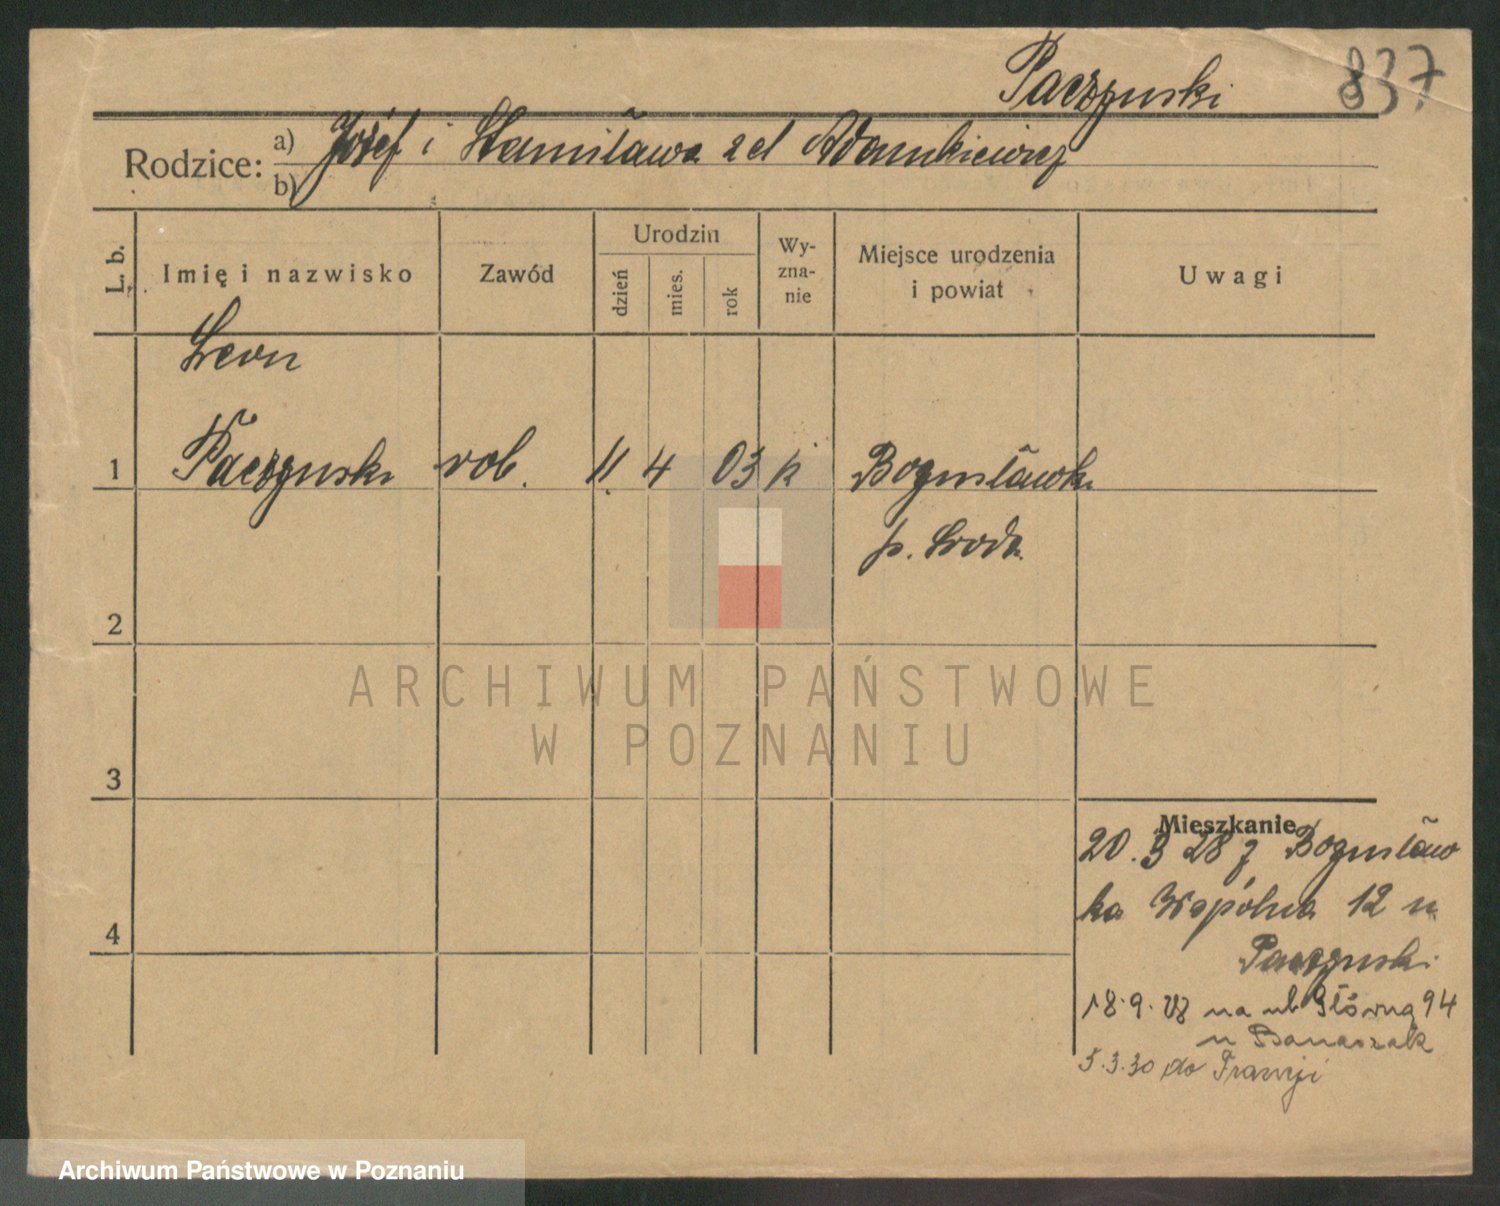 Paczyński 837
Rodzice: a) Józef i Stanisława z d Adamkiewicz
b)
L. b. Imię i nazwisko Zawód Urodzin dzień mies. rok Wyznanie Miejsce urodzenia i powiat Uwagi
Leon
1 Paczyński rob. 11. 4 03 k Bogusławki
p. Środa
2
ARCHIWUM PAŃSTWOWE
W POZNANIU
3
Mieszkanie
20. 3 28 z Bogusław
ka Wspólna 12 u
Paczyński
4
18.9.28 na ul. Główną 94
u Banaszak
5.3.30 do Francji
Archiwum Państwowe w Poznaniu